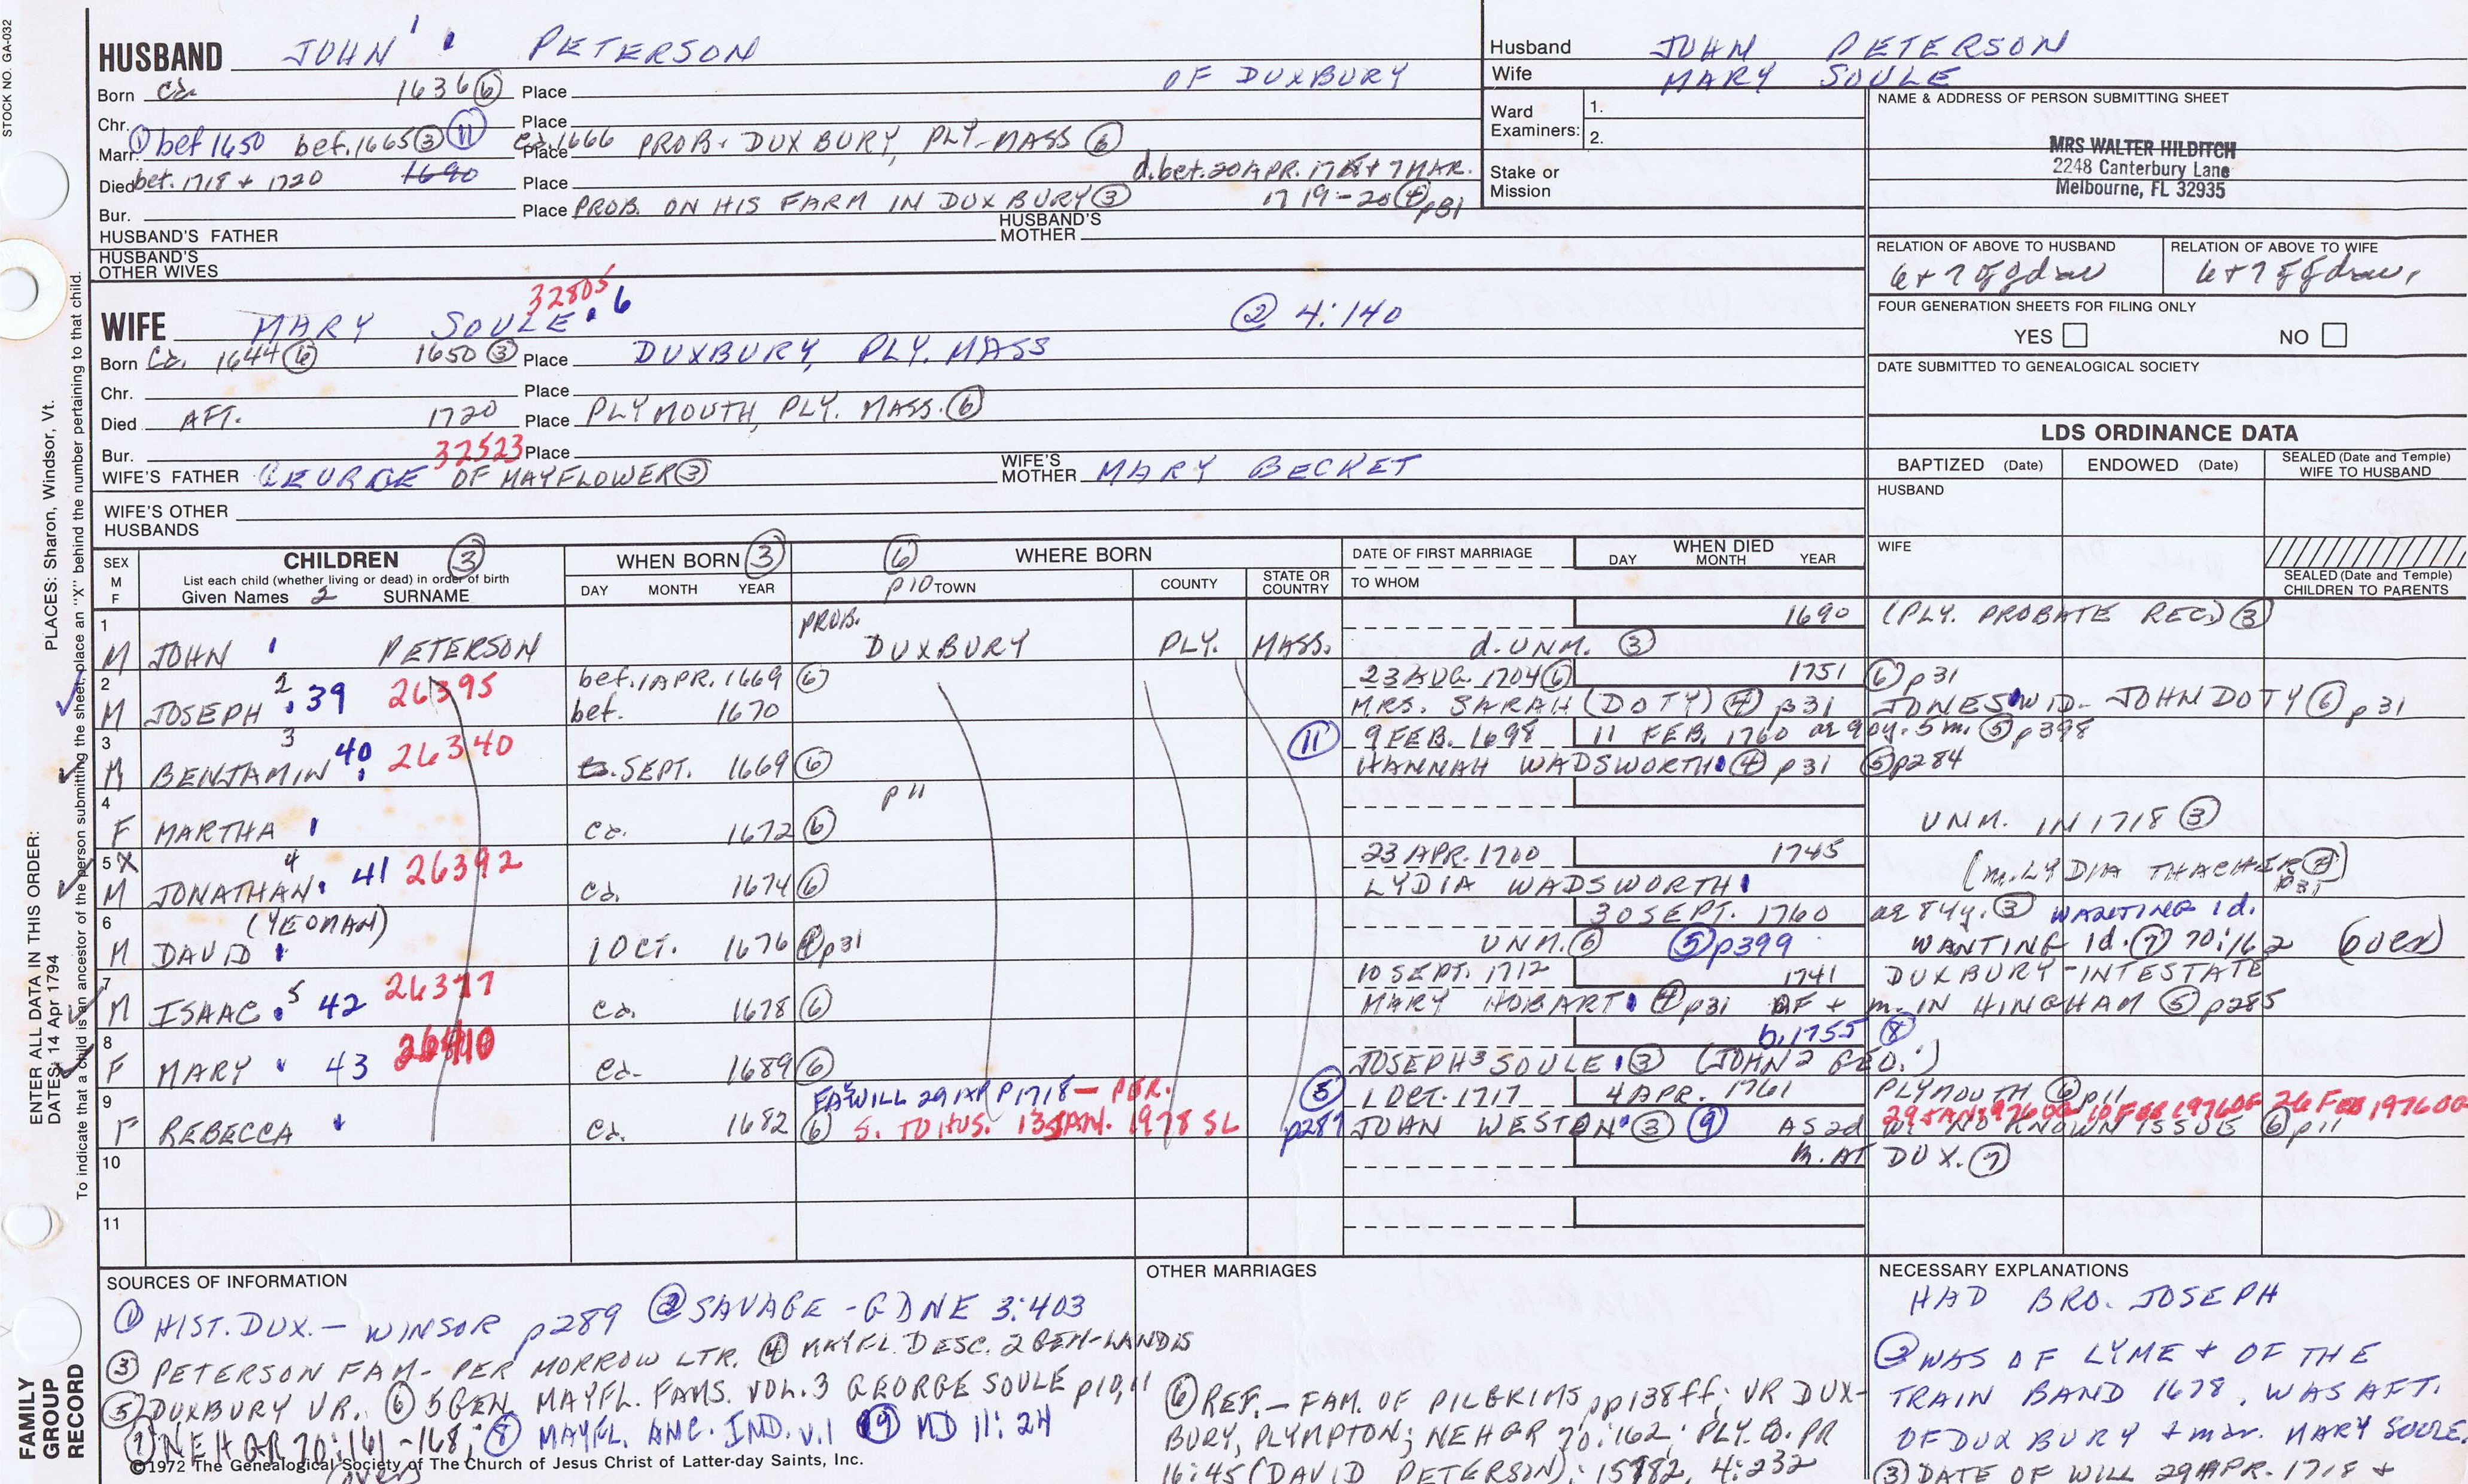 STOCK NO. GA-032
HUSBAND JOHN PETERSON
OF DUXBURY
Born Ca. 1636 ⑥ Place
Chr. Place
Marr. ① bef 1650 bef. 1665 ③ ⑪ Ca. 1666 Place PROB. DUXBURY, PLY-MASS ⑥
Died bet. 1718 + 1720 1690 Place d. bet. 20 APR. + 7 MAR.
Bur. Place PROB. ON HIS FARM IN DUXBURY ③ 1719-20 ④ p31
HUSBAND'S FATHER HUSBAND'S MOTHER
HUSBAND'S OTHER WIVES
32805
WIFE MARY SOULE 6 ② 4:140
Born Ca. 1644 ⑥ 1650 ③ Place DUXBURY, PLY. MASS
Chr. Place
Died AFT. 1720 Place PLYMOUTH, PLY. MASS. ⑥
Bur. 32523 Place
WIFE'S FATHER GEORGE OF MAYFLOWER ③ WIFE'S MOTHER MARY BECKET
WIFE'S OTHER HUSBANDS
Husband JOHN PETERSON
Wife MARY SOULE
Ward Examiners: 1.
2.
Stake or Mission
NAME & ADDRESS OF PERSON SUBMITTING SHEET
MRS WALTER HILDITCH
2248 Canterbury Lane
Melbourne, FL 32935
RELATION OF ABOVE TO HUSBAND RELATION OF ABOVE TO WIFE
6+7 ggdau 6+7 ggdau,
FOUR GENERATION SHEETS FOR FILING ONLY
YES NO
DATE SUBMITTED TO GENEALOGICAL SOCIETY
LDS ORDINANCE DATA
BAPTIZED (Date) ENDOWED (Date) SEALED (Date and Temple) WIFE TO HUSBAND
HUSBAND
WIFE
SEALED (Date and Temple) CHILDREN TO PARENTS
SEX M F CHILDREN ③ WHEN BORN ③ ⑥ WHERE BORN DATE OF FIRST MARRIAGE WHEN DIED
List each child (whether living or dead) in order of birth
Given Names 2 SURNAME DAY MONTH YEAR p10 TOWN COUNTY STATE OR COUNTRY TO WHOM DAY MONTH YEAR
1 PROB. 1690 (PLY. PROBATE REC) ③
M JOHN PETERSON DUXBURY PLY. MASS. d. UNM. ③
2 2 39 26395 bef. 1 APR. 1669 ⑥ 23 AUG. 1704 ⑥ 1751 ⑥ p31
M JOSEPH bet. 1670 MRS. SARAH (DOTY) ④ p31 JONES WID- JOHN DOTY ⑥ p31
3 3 40 26340 ⑪ 9 FEB. 1698 11 FEB. 1760 ae 90y. 5m. ⑤ p398
M BENJAMIN SEPT. 1669 ⑥ HANNAH WADSWORTH ④ p31 ⑤ p284
4 p11
F MARTHA Ca. 1672 ⑥ UNM. IN 1718 ③
5 X 4 41 26392 23 APR. 1700 1745 (m. LYDIA THACHER ④ p31)
M JONATHAN Ca. 1674 ⑥ LYDIA WADSWORTH
6 (YEOMAN) 30 SEPT. 1760 ae 84y. ③ WANTING 1d.
M DAVID 1 OCT. 1676 ④ p31 UNM. ⑥ ⑤ p399 WANTING 1d. ⑦ 70:162 (over)
7 5 42 26377 10 SEPT. 1712 1741 DUXBURY-INTESTATE
M ISAAC Ca. 1678 ⑥ MARY HOBART ④ p31 OF + m. IN HINGHAM ⑤ p285
8 43 26410 b. 1755 ⑧
F MARY Ca. 1689 ⑥ JOSEPH³ SOULE ③ (JOHN² GEO.¹)
9 FA. WILL 29 APR 1718 — PER. ⑤ 1 OCT. 1717 4 APR. 1761 PLYMOUTH ⑥ p11
29 JAN 1976 OG 10 FEB 1976 OG 26 FEB 1976 OG
F REBECCA Ca. 1682 ⑥ S. TO HUS. 13 JAN. 1978 SL p287 JOHN WESTON ③ ⑨ AS 2d WF NO KNOWN ISSUE ⑥ p11
10 m. AT DUX. ⑦
11
SOURCES OF INFORMATION
① HIST. DUX. — WINSOR p289 ② SAVAGE - GDNE 3:403
③ PETERSON FAM- PER MORROW LTR. ④ MAYFL DESC. 2 GEN-LANDIS
⑤ DUXBURY VR. ⑥ 5 GEN. MAYFL. FAMS. VOL. 3 GEORGE SOULE p10,11
⑦ NEHGR 70:161-168; ⑧ MAYFL. ANC. IND. v.1 ⑨ MD 11:24
(over)
©1972 The Genealogical Society of The Church of Jesus Christ of Latter-day Saints, Inc.
OTHER MARRIAGES
⑥ REF. — FAM. OF PILGRIMS pp138ff; VR DUX-
BURY, PLYMPTON; NEHGR 70:162; PLY. CO. PR
16:45 (DAVID PETERSON); 15782, 4:232
NECESSARY EXPLANATIONS
HAD BRO. JOSEPH
② WAS OF LYME + OF THE
TRAIN BAND 1678, WAS AFT.
OF DUXBURY + mar. MARY SOULE.
③ DATE OF WILL 29 APR. 1718 +
PLACES: Sharon, Windsor, Vt.
ENTER ALL DATA IN THIS ORDER:
DATES: 14 Apr 1794
To indicate that a child is an ancestor of the person submitting the sheet, place an "X" behind the number pertaining to that child.
FAMILY GROUP RECORD